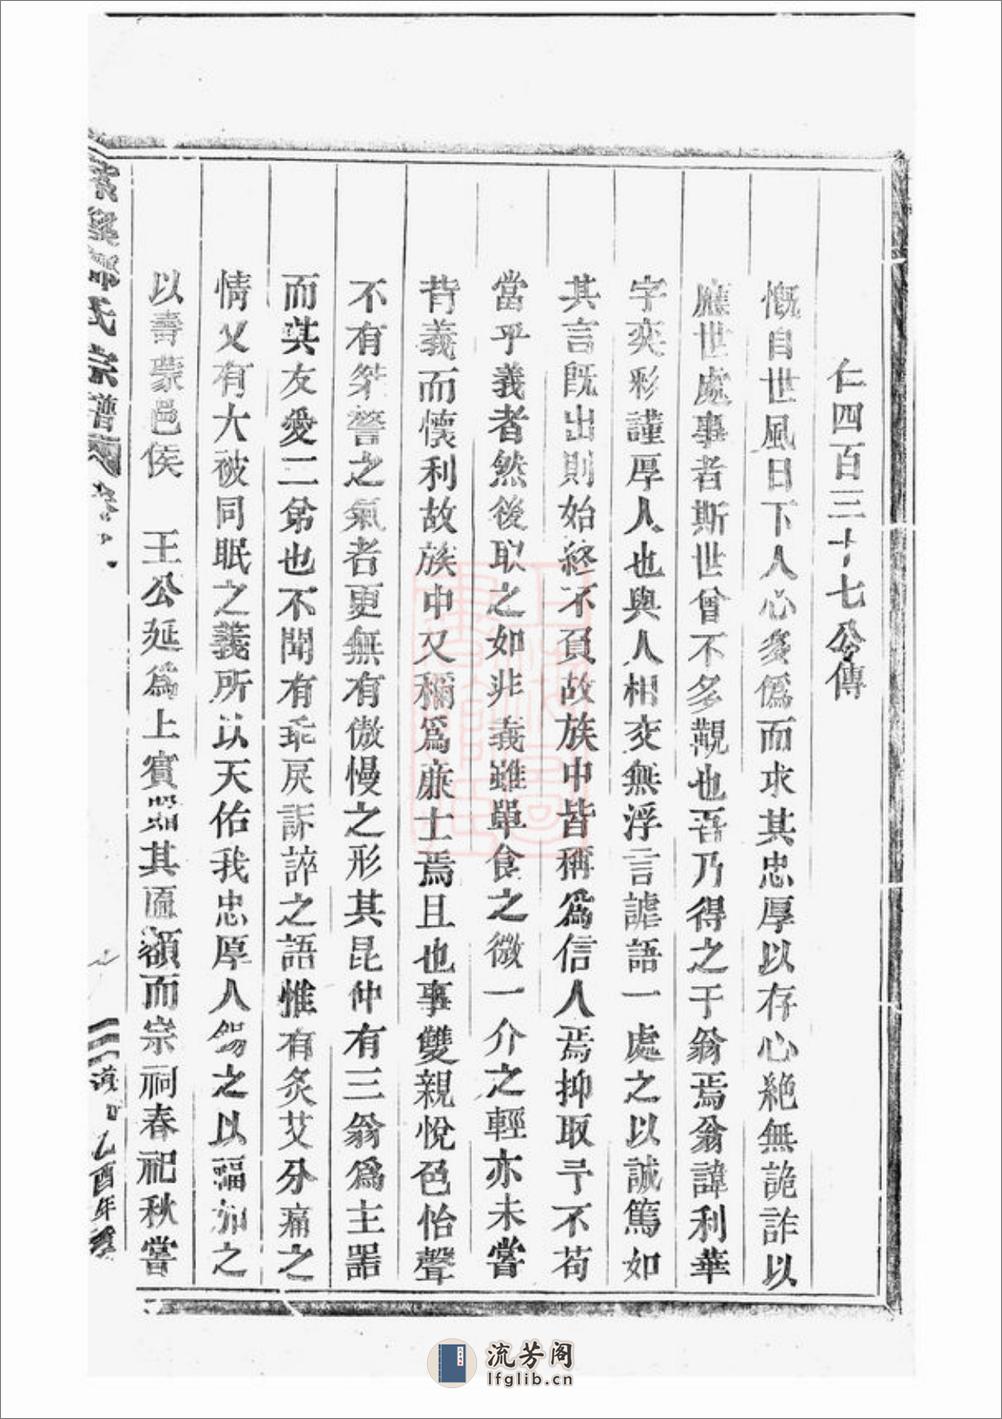 仁四百三十七公傳
慨自世風日下人心多僞而求其忠厚以存心絶無詭詐以
應世處事者斯世曾不多覯也吾乃得之于翁焉翁諱利華
字奕彩謹厚人也與人相交無浮言謔語一處之以誠篤如
其言既出則始終不負故族中皆稱爲信人焉抑取予不苟
當乎義者然後取之如非義雖單食之微一介之輕亦未嘗
背義而懷利故族中又稱爲亷士焉且也事雙親悅色怡聲
不有桀驁之氣者更無有傲慢之形其昆仲有三翁爲主器
而其友愛二弟也不聞有乖戾訴誶之語惟有灸艾分痛之
情又有大被同眠之義所以天佑我忠厚人錫之以福加之
以壽蒙邑侯 王公延爲上賓賜其匾額而宗祠春祀秋嘗
氏宗譜
乙酉年
流芳阁
lfglib.cn